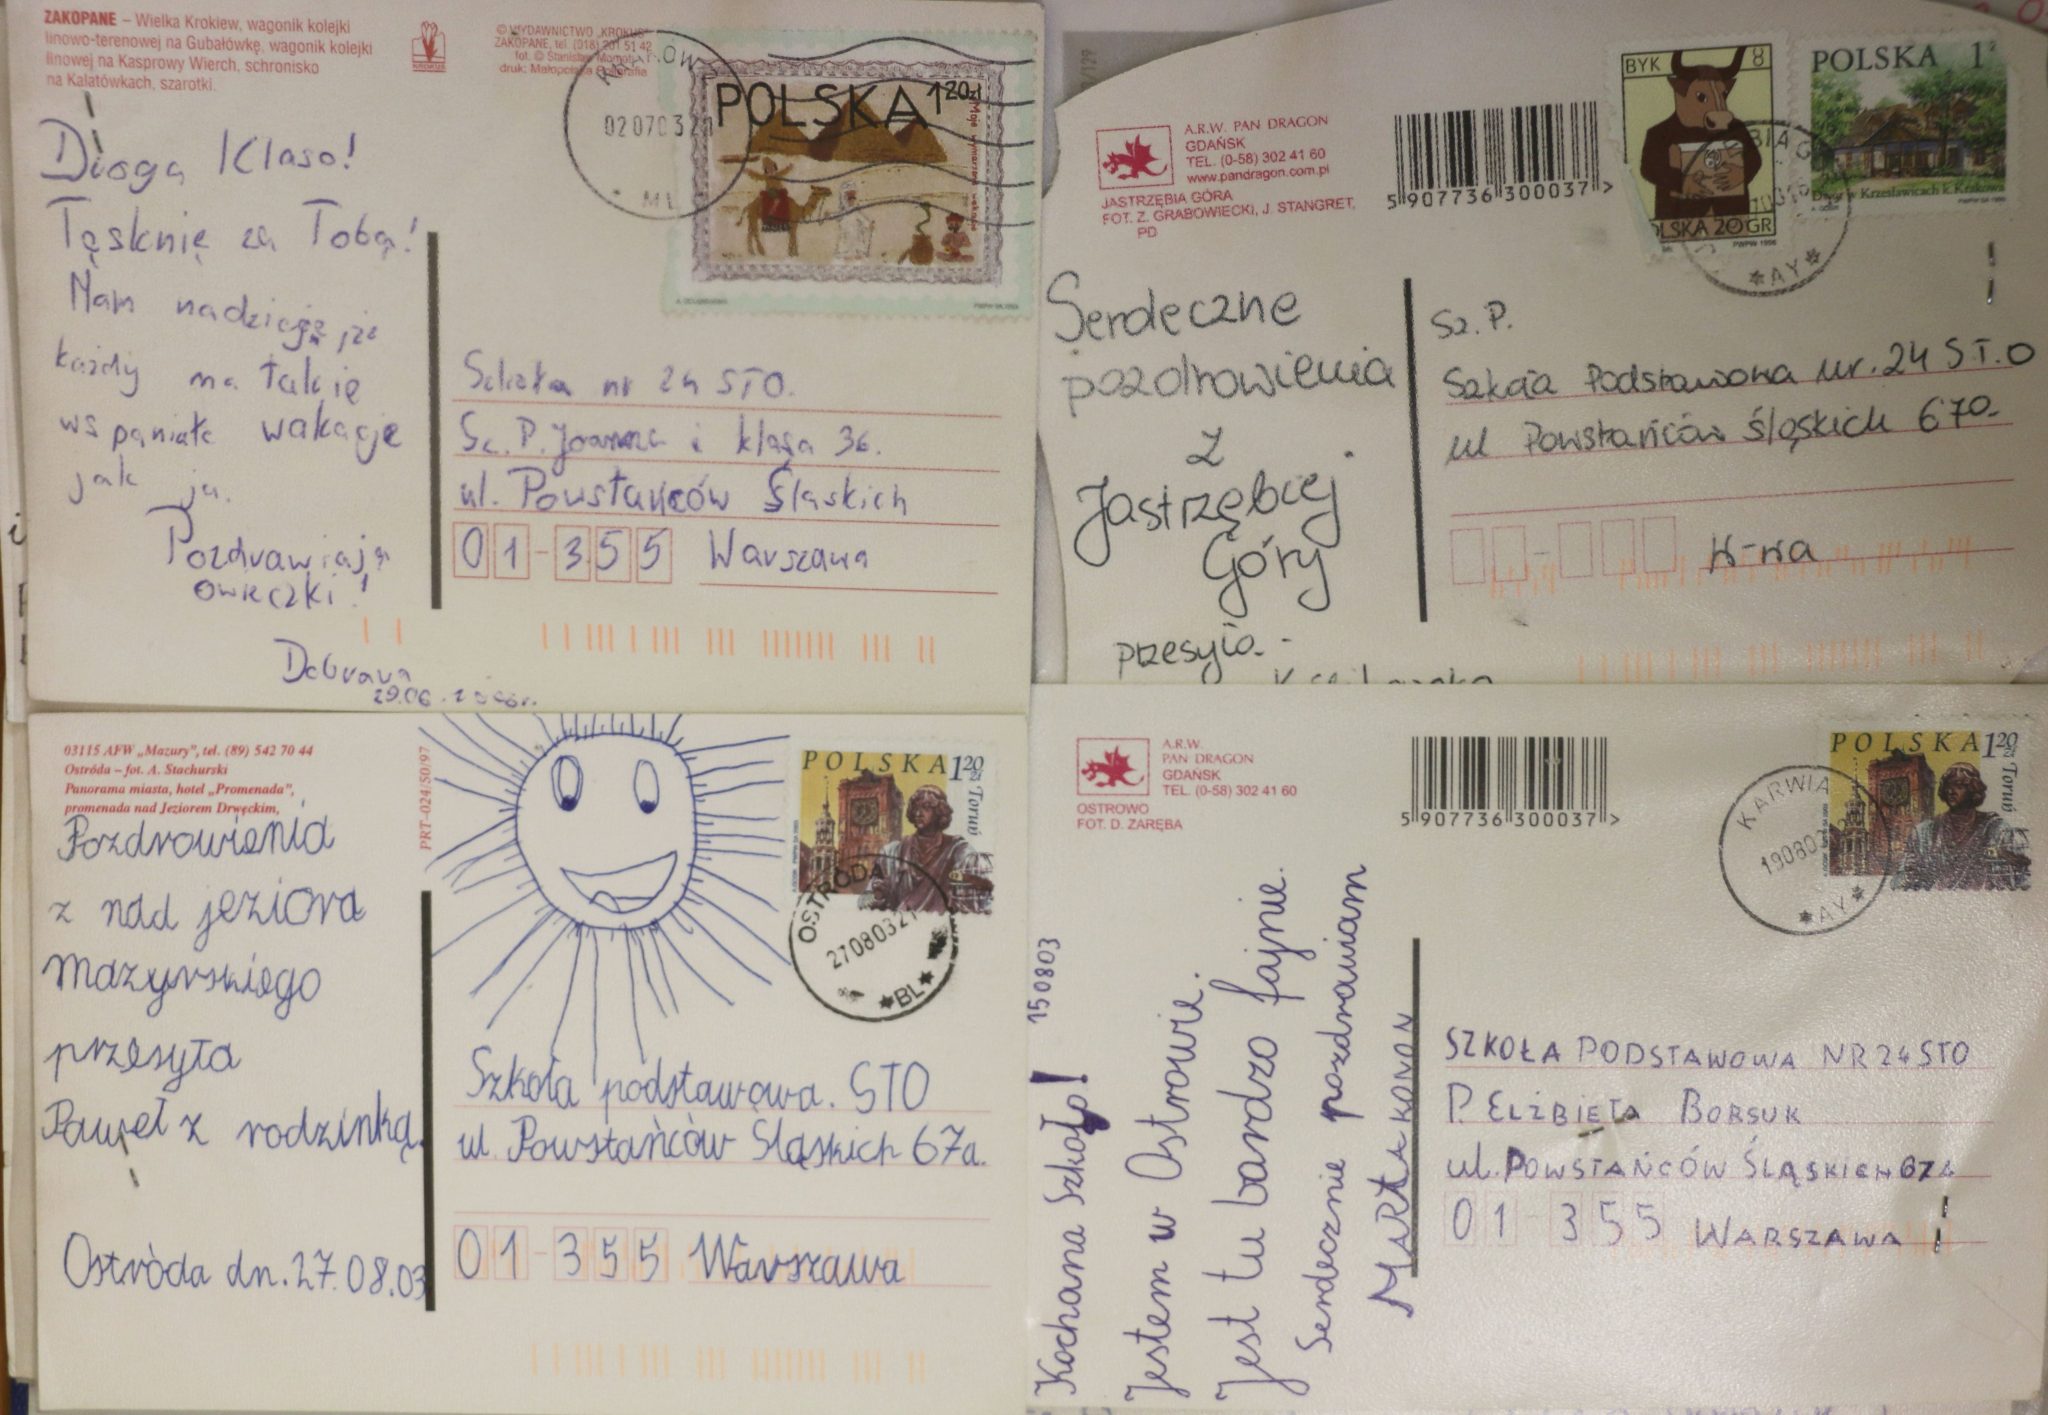 ZAKOPANE – Wielka Krokiew, wagonik kolejki
linowo-terenowej na Gubałówkę, wagonik kolejki
linowej na Kasprowy Wierch, schronisko
na Kalatówkach, szarotki.
© WYDAWNICTWO „KROKUS”
ZAKOPANE, tel. (018) 201 51 42
fot. © Stanisław Momot
druk: Małopolska Poligrafia
KROKUS
POLSKA 1 20 zł
020703
Droga Klaso!
Tęsknię za Tobą!
Mam nadzieję, że
każdy ma takie
wspaniałe wakacje
jak ja.
Pozdrawiają
owieczki!
Dobrawa
29.06.
Szkoła nr 24 STO.
Sz. P. Joanna i klasa 3b.
ul. Powstańców Śląskich
01-355 Warszawa
A.R.W. PAN DRAGON
GDAŃSK
TEL. (0-58) 302 41 60
www.pandragon.com.pl
JASTRZĘBIA GÓRA
FOT. Z. GRABOWIECKI, J. STANGRET,
PD
5 907736 300037 >
BYK 8
POLSKA 20 GR
PWPW 1996
POLSKA 1
Dwór w Krzesławicach k. Krakowa
*AY*
Serdeczne
pozdrowienia
z
Jastrzębiej
Góry
przesyła
Sz. P.
Szkoła Podstawowa nr. 24 ST.O
ul Powstańców Śląskich 67a
W-wa
03115 AFW „Mazury”, tel. (89) 542 70 44
Ostróda – fot. A. Stachurski
Panorama miasta, hotel „Promenada”,
promenada nad Jeziorem Drwęckim,
PRT-024/50/97
POLSKA 1 20 zł
Toruń
OSTRÓDA
270803
*BL*
Pozdrowienia
z nad jeziora
Mazurskiego
przesyła
Paweł z rodzinką.
Ostróda dn. 27.08.03
Szkoła podstawowa. STO
ul. Powstańców Śląskich 67a.
01-355 Warszawa
A.R.W.
PAN DRAGON
GDAŃSK
TEL. (0-58) 302 41 60
OSTROWO
FOT. D. ZARĘBA
5 907736 300037 >
POLSKA 1 20 zł
Toruń
KARWIA
190803
*AY*
Kochana Szkoło! 150803
Jestem w Ostrowie.
Jest tu bardzo fajnie.
Serdecznie pozdrawiam
MARTA KONON
SZKOŁA PODSTAWOWA NR 24 STO
P. ELŻBIETA BORSUK
ul. POWSTAŃCÓW ŚLĄSKICH 67A
01-355 WARSZAWA